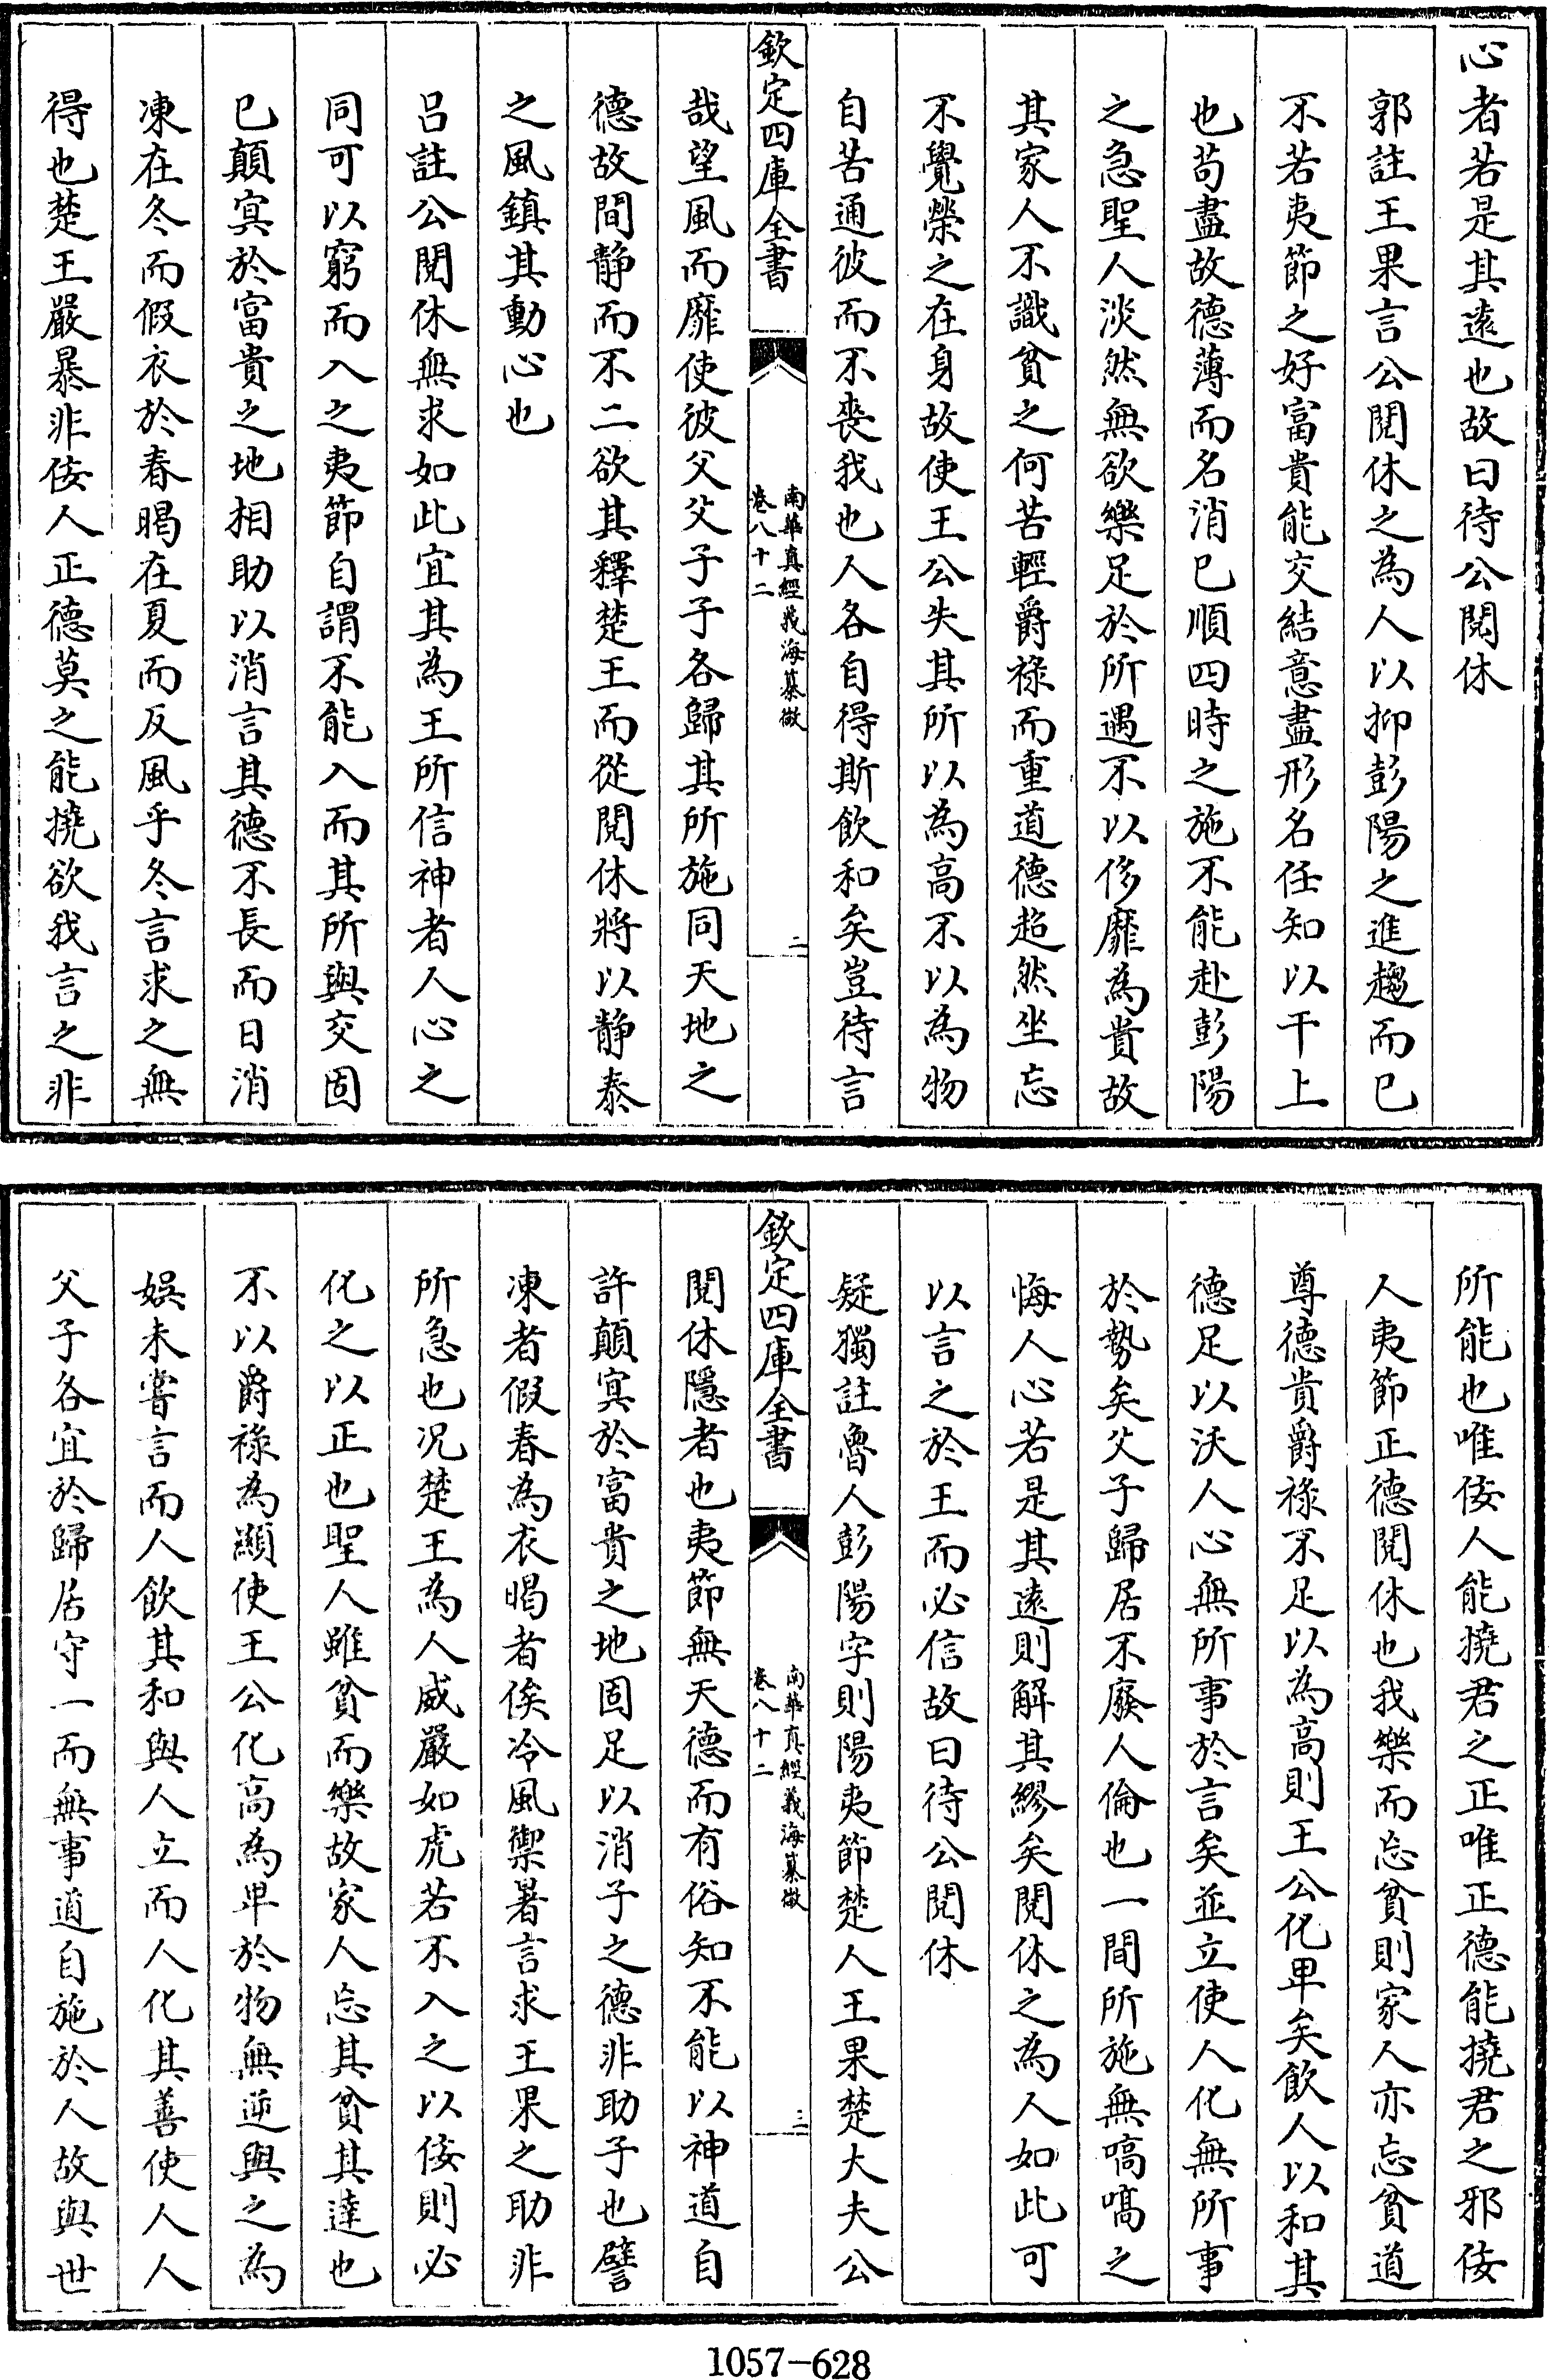 心者若是其遠也故曰待公閱休
郭註王果言公閱休之為人以抑彭陽之進趨而已
不若夷節之好富貴能交結意盡形名任知以干上
也苟盡故德薄而名消已順四時之施不能赴彭陽
之急聖人淡然無欲樂足於所遇不以侈靡為貴故
其家人不識貧之何苦輕爵祿而重道德超然坐忘
不覺榮之在身故使王公失其所以為高不以為物
自苦通彼而不喪我也人各自得斯飲和矣豈待言
欽定四庫全書
南華真經義海纂微
卷八十二
二
哉望風而靡使彼父父子子各歸其所施同天地之
德故間靜而不二欲其釋楚王而從閱休將以靜泰
之風鎮其動心也
呂註公閱休無求如此宜其為王所信神者人心之
同可以窮而入之夷節自謂不能入而其所與交固
已顛㝠於富貴之地相助以消言其德不長而日消
凍在冬而假衣於春暍在夏而反風乎冬言求之無
得也楚王嚴暴非佞人正德莫之能撓欲我言之非
所能也唯佞人能撓君之正唯正德能撓君之邪佞
人夷節正德閱休也我樂而忘貧則家人亦忘貧道
尊德貴爵祿不足以為高則王公化卑矣飲人以和其
德足以沃人心無所事於言矣並立使人化無所事
於勢矣父子歸居不廢人倫也一間所施無嗃嗃之
悔人心若是其遠則解其繆矣閱休之為人如此可
以言之於王而必信故曰待公閱休
疑獨註魯人彭陽字則陽夷節楚人王果楚大夫公
欽定四庫全書
南華真經義海纂微
卷八十二
三
閱休隱者也夷節無天德而有俗知不能以神道自
許顛㝠於富貴之地固足以消子之德非助子也譬
凍者假春為衣暍者俟冷風禦暑言求王果之助非
所急也況楚王為人威嚴如虎若不入之以佞則必
化之以正也聖人雖貧而樂故家人忘其貧其達也
不以爵祿為顯使王公化高為卑於物無逆與之為
娛未嘗言而人飲其和與人立而人化其善使人人
父子各宜於歸居守一而無事道自施於人故與世
1057-628